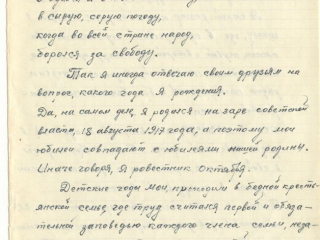 в сырую, серую погоду,
когда во всей стране народ,
боролся за свободу.
Так я иногда отвечаю своим друзьям на
вопрос, какого года я рождения.
Да, на самом деле, я родился на заре советской
власти, 18 августа 1917 года, а поэтому мои
юбилеи совпадают с юбилеями нашей родины.
Иначе говоря, я ровестник Октября.
Детские годы мои, проходили в бедной кресть-
янской семье, где труд считался первой и обяза-
тельной заповедью каждого члена семьи, неза-